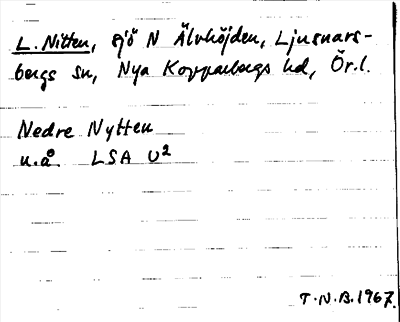 L. Nitten, sjö N Älvhöjden, Ljusnars-
bergs sn, Nya Kopparbergs hd, Ör.l.
Nedre Nytten
u.å. LSA U²
T.N.B. 1967.